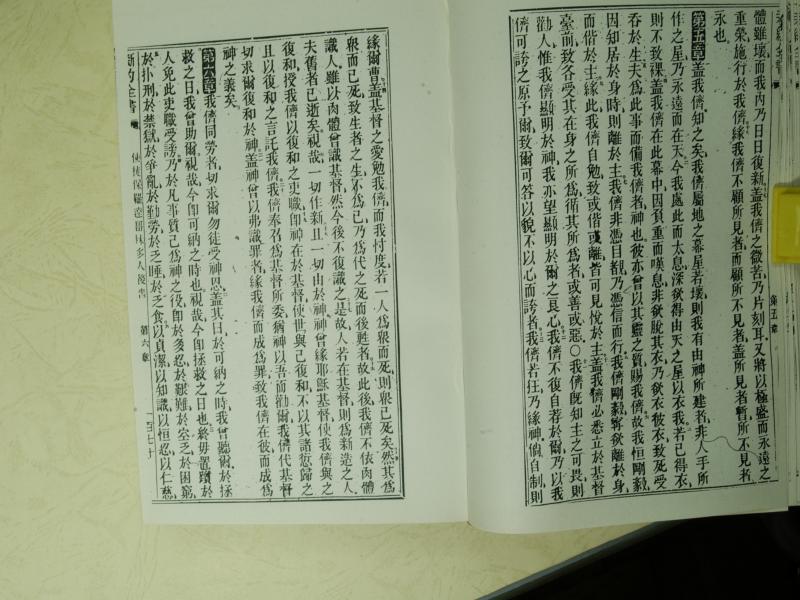 體雖壞而我內乃日日復新蓋我儕之微苦乃片刻耳又將以極盛而永遠之
重榮施行於我儕緣我儕不顧所見者而顧所不見者蓋所見者暫所不見者
永也
第五章蓋我儕知之矣我儕屬地之幕星若壞則我有由神所建者非人手所
作之星乃永遠而在天今我處此而太息深欲得由天之星以衣我若已得衣
則不致裸蓋我儕在此幕中因負重而嘆息非欲脫其衣乃欲衣彼衣致死受
吞於生夫為此事而備我儕者神也彼亦曾以其靈之質賜我儕故我恒剛毅
因知居於身時則離於主我儕非憑目覩乃憑信而行我儕剛毅寧欲離於身
而偕於主緣此我儕自勉致或偕或離皆可見悅於主蓋我儕必悉立於基督
臺前致各受其在身之所為循其所為者或善或惡○我儕既知主之可畏則
勸人惟我儕顯明於神我亦望顯明於爾之良心我儕不復自荐於爾乃以我
儕可誇之原予爾致爾可答以貌不以心而誇者我儕若狂乃緣神倘自制則
第五章
緣爾曹蓋基督之愛勉我儕而我忖度若一人為眾而死則眾已死矣然其為
眾而已死致生者之生不為已乃為代之死而後甦者故此後我儕不依肉體
識人雖以肉體曾識基督然今後不復識之是故人若在基督則為新造之人
夫舊者已逝矣視哉一切作新且一切由於神神曾緣耶穌基督使我儕與之
復和授我儕以復和之吏職卽神在於基督使世與己復和不以其諸愆歸之
且以復和之言託我儕我儕奉召為基督所委猶神以吾而勸爾我儕代基督
切求爾復和於神蓋神曾以弗識罪者緣我儕而成為罪致我儕在彼而成為
神之義矣
第六章我儕同勞者切求爾勿徒受神恩蓋其曰於可納之時我曾聽爾於拯
救之日我曾助爾視哉今卽可納之時也視哉今卽拯救之日也終毋置躓於
人免此吏職受謗乃於凡事質己為神之役卽於多忍於艱難於空乏於困窮
於扑刑於禁獄於爭亂於勤勞於乏睡於乏食以貞潔以知識以恒忍以仁慈
新約全書 使徒保羅達哥林多人後書 第六章 一百七十